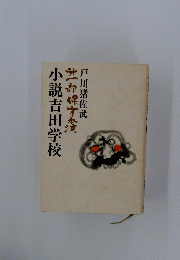 戸川猪佐武
第一部 保守本流
小説吉田学校